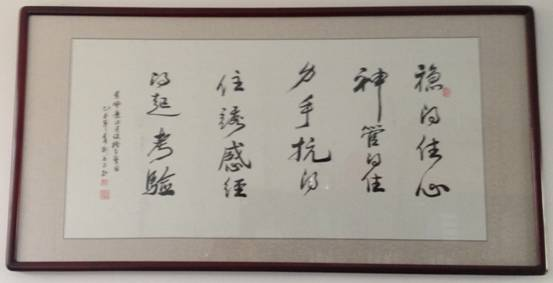 稳得住心
神管得住
身手抗得
住诱惑经
得起考验